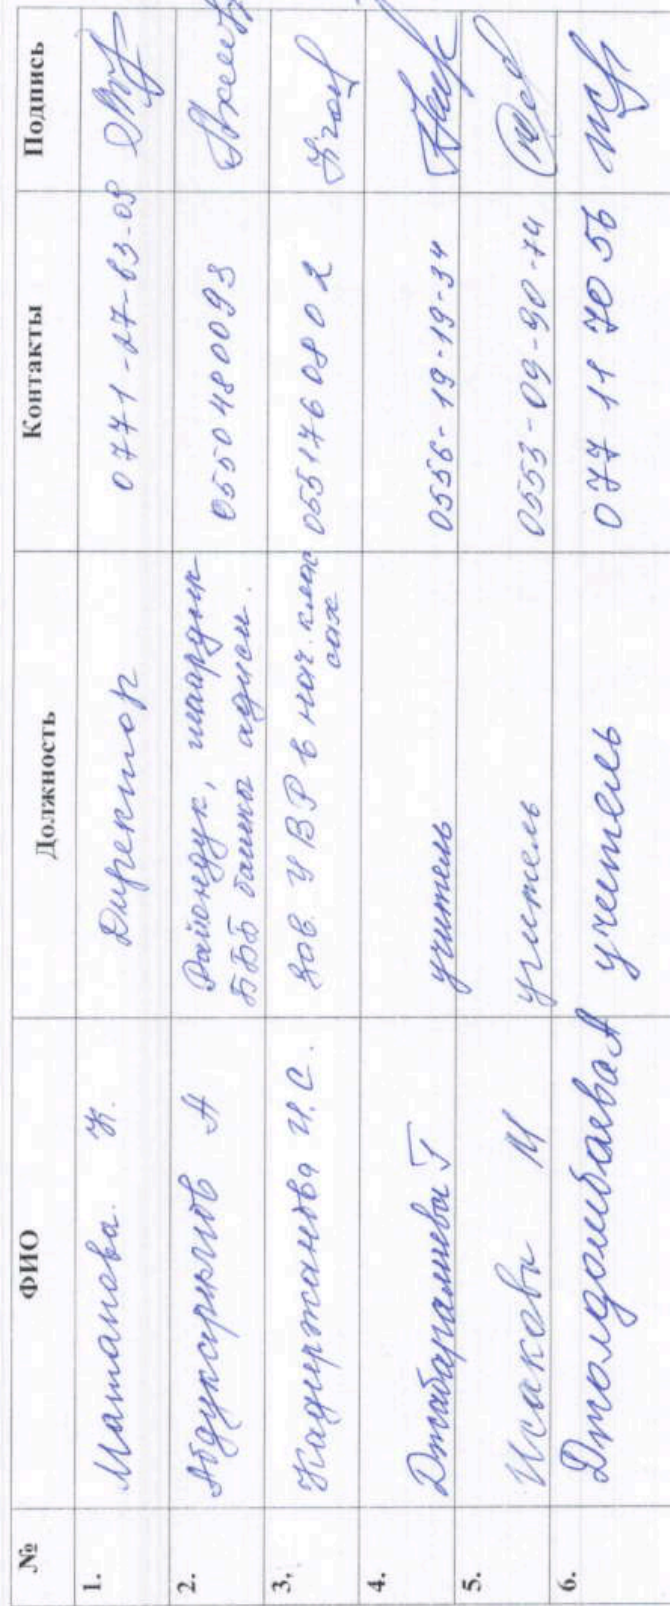 № ФИО Должность Контакты Подпись
1. Матанова К. Директор 0771-27-63-03
2. А Райондук, шаардык 0550480093
БББ башкы адиси.
3. Кадыржанова Н.С. Зав. УВР в нач. клас 0551760802
сах
4. Джапаралиева Г учитель 0556-19-19-34
5. Исакова М учитель 0553-09-90-74
6. Джолдошбаева А учитель 077 11 70 56